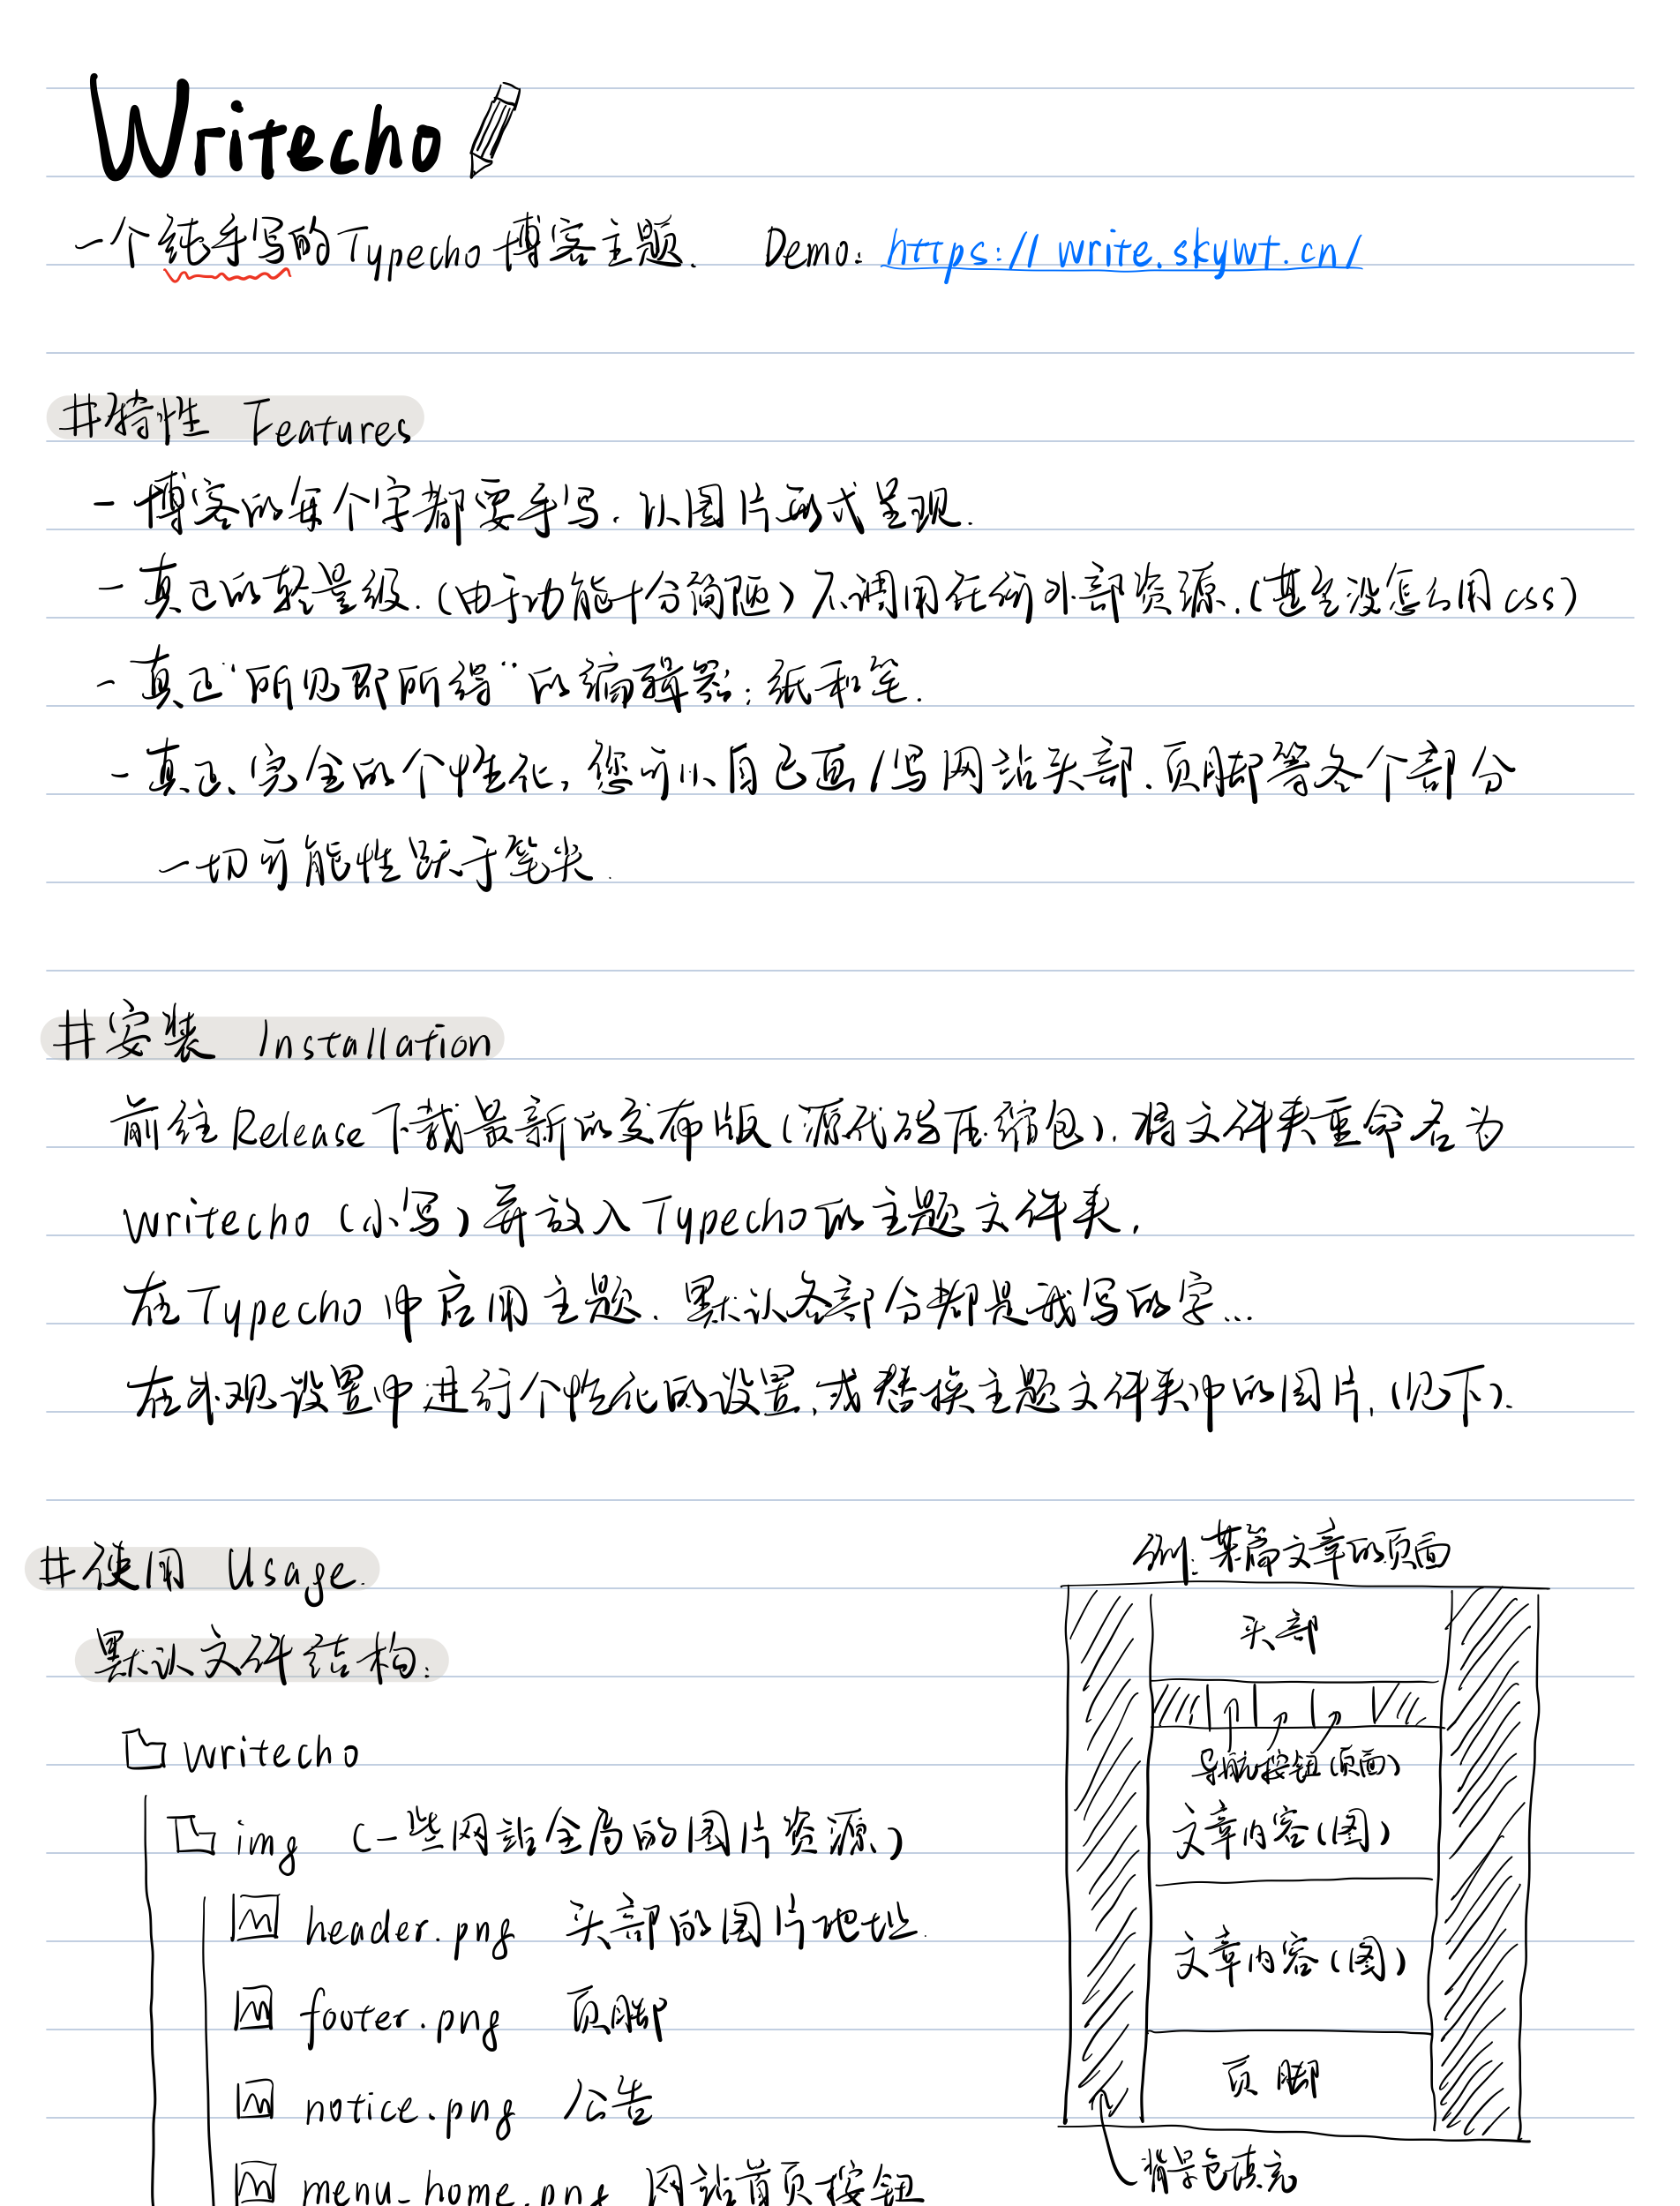 Writecho
一个纯手写的Typecho博客主题. Demo: https://write.skywt.cn/
#特性 Features
- 博客的每个字都要手写. 以图片形式呈现.
- 真正的轻量级.(由于功能十分简陋)不调用任何外部资源.(甚至没怎么用css)
- 真正“所见即所得”的编辑器: 纸和笔.
- 真正、完全的个性化, 您可以自己画/写网站头部、页脚等各个部分
一切可能性跃于笔尖.
#安装 Installation
前往Release下载最新的发布版(源代码压缩包), 将文件夹重命名为
writecho(小写)并放入Typecho的主题文件夹,
在Typecho中启用主题. 默认各部分都是我写的字...
在外观设置中进行个性化的设置,或替换主题文件夹中的图片, (见下).
#使用 Usage.
默认文件结构:
writecho
img (一些网站全局的图片资源)
header.png 头部的图片地址.
footer.png 页脚
notice.png 公告
menu-home.png 网站首页按钮
例: 某篇文章的页面
头部
导航按钮(页面)
文章内容(图)
文章内容(图)
页脚
背景色填充